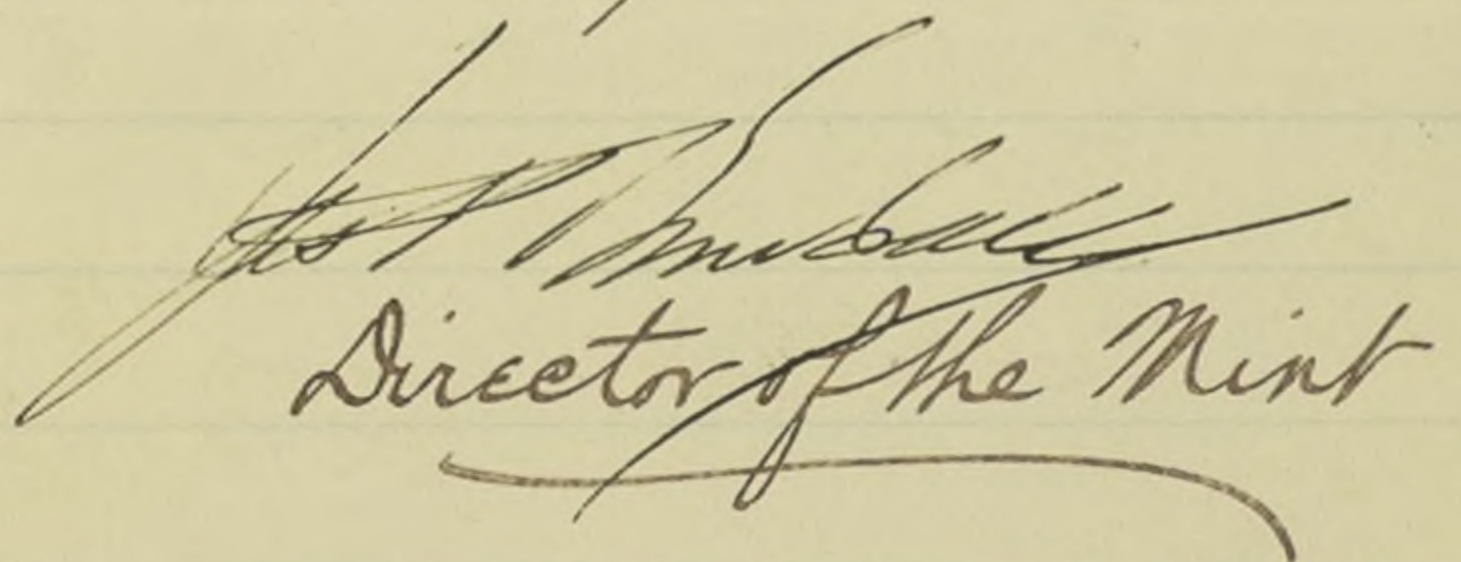 Jas P Kimball
Director of the Mint